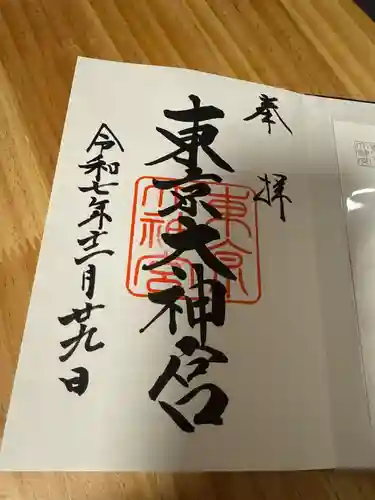 奉拝
東京大神宮
東京
大神宮
令和七年十二月廿九日